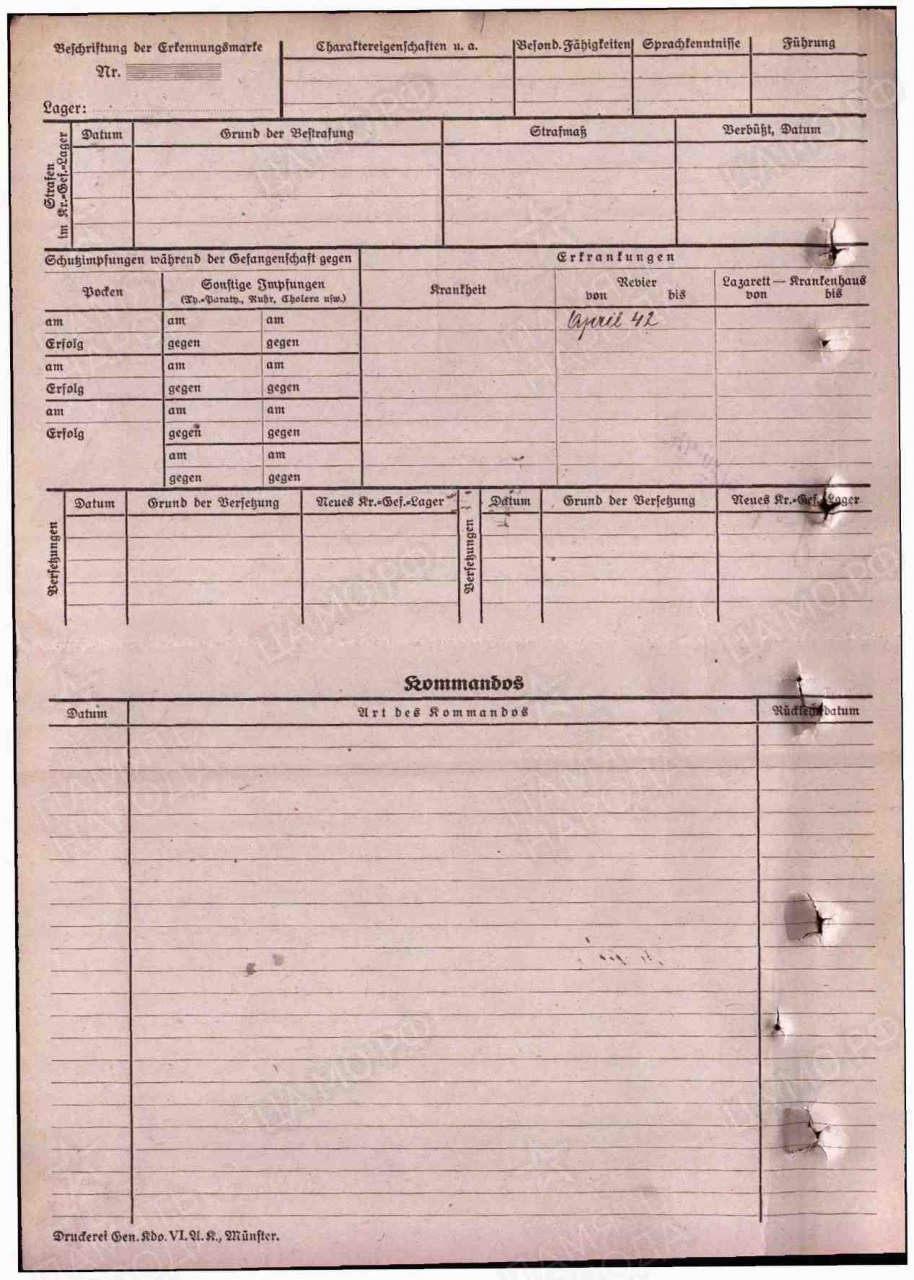 Beschriftung der Erkennungsmarke
Nr.
Lager:
Charaktereigenschaften u. a.
Besond. Fähigkeiten
Sprachkenntnisse
Führung
Strafen
im Kr.-Gef.-Lager
Datum
Grund der Bestrafung
Strafmaß
Verbüßt, Datum
Schutzimpfungen während der Gefangenschaft gegen
Erkrankungen
Pocken
Sonstige Impfungen
(Ty.-Paraty., Ruhr, Cholera usw.)
Krankheit
Revier
von bis
Lazarett — Krankenhaus
von bis
am am am April 42
Erfolg gegen gegen
am am am
Erfolg gegen gegen
am am am
Erfolg gegen gegen
am am
gegen gegen
Versetzungen
Datum
Grund der Versetzung
Neues Kr.-Gef.-Lager
Versetzungen
Datum
Grund der Versetzung
Neues Kr.-Gef.-Lager
Kommandos
Datum
Art des Kommandos
Rückkehrdatum
Druckerei Gen. Kdo. VI. A. K., Münster.
ЦАМО.РФ
ПАМЯТЬ
НАРОДА